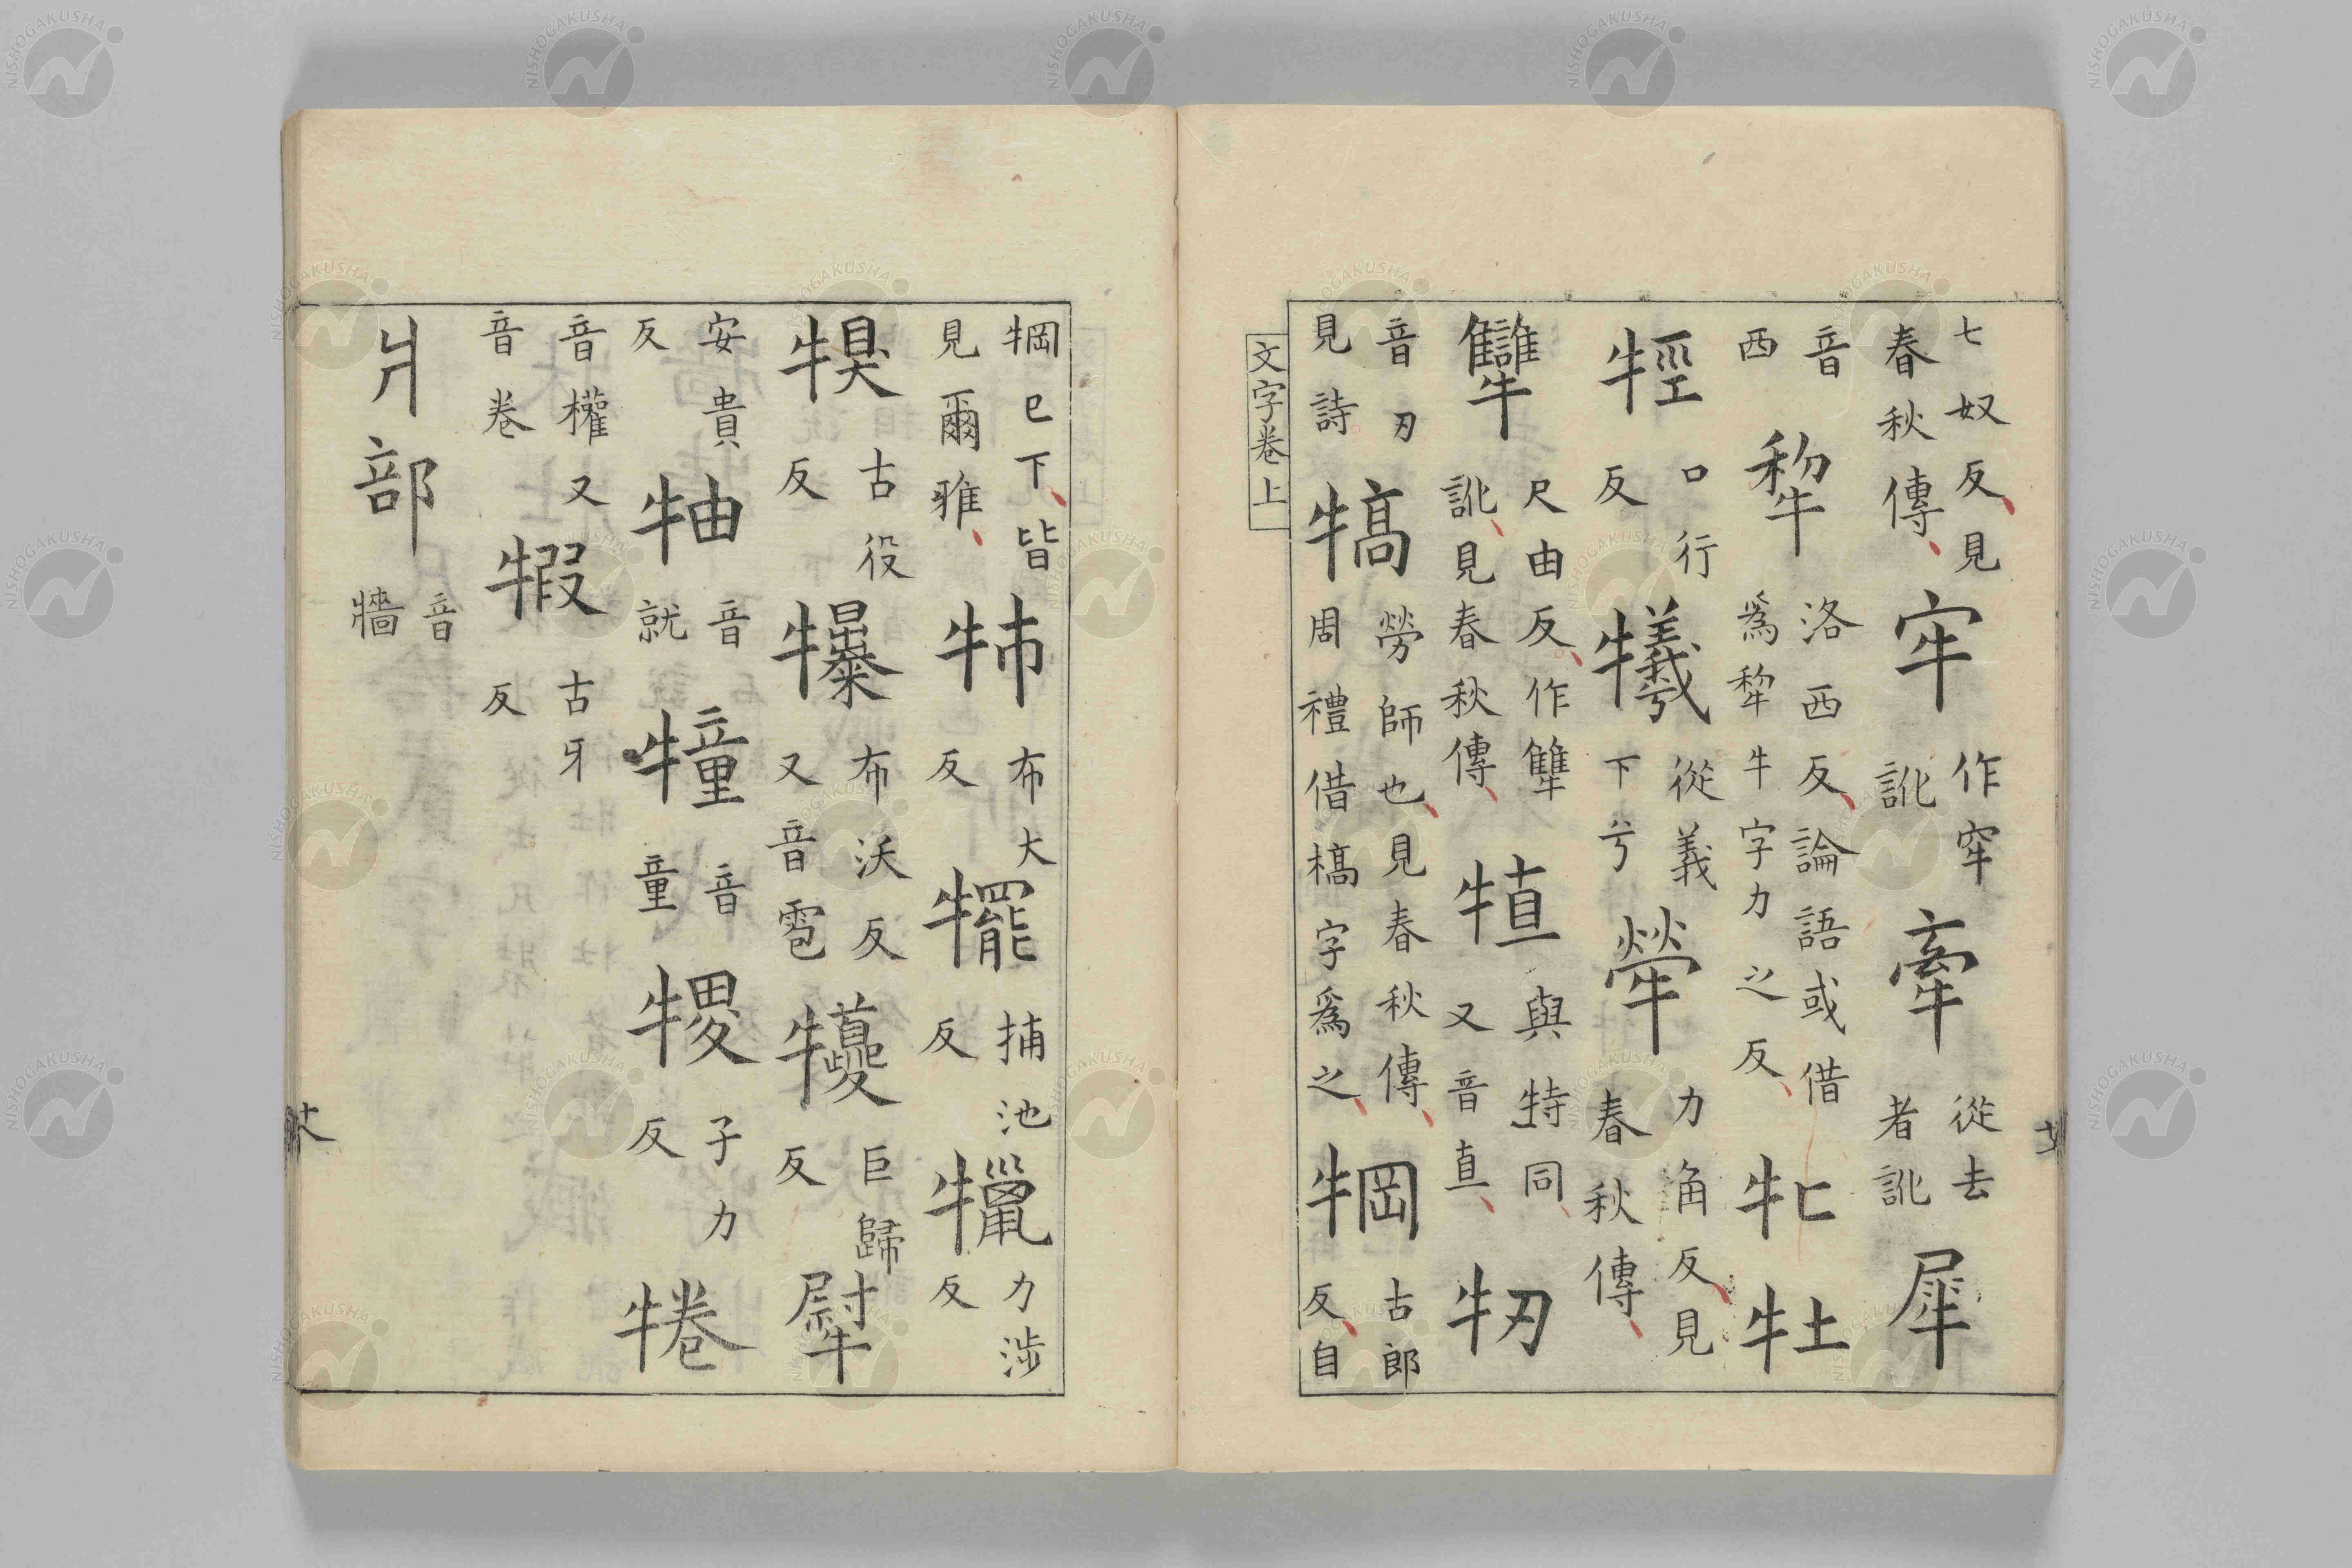 七奴反見春秋傳牢作窂訛牽從去者訛犀
音西犂洛西反論語或借爲犂牛字力之反牝牡
牼口行反犧從義下兮犖力角反見春秋傳
犫尺由反作犨訛見春秋傳犆與特同又音直牣
音刃見詩犒勞師也見春秋傳周禮借槁字爲之犅古郎反自
文字卷上
犅已下皆見爾雅㸬布大反犤捕池反犣力涉反
犑古役反犦布沃反又音雹犪巨歸反犚
安貴反牰音就犝音童子力反犈
音權又音卷犌古牙反
爿部音牆